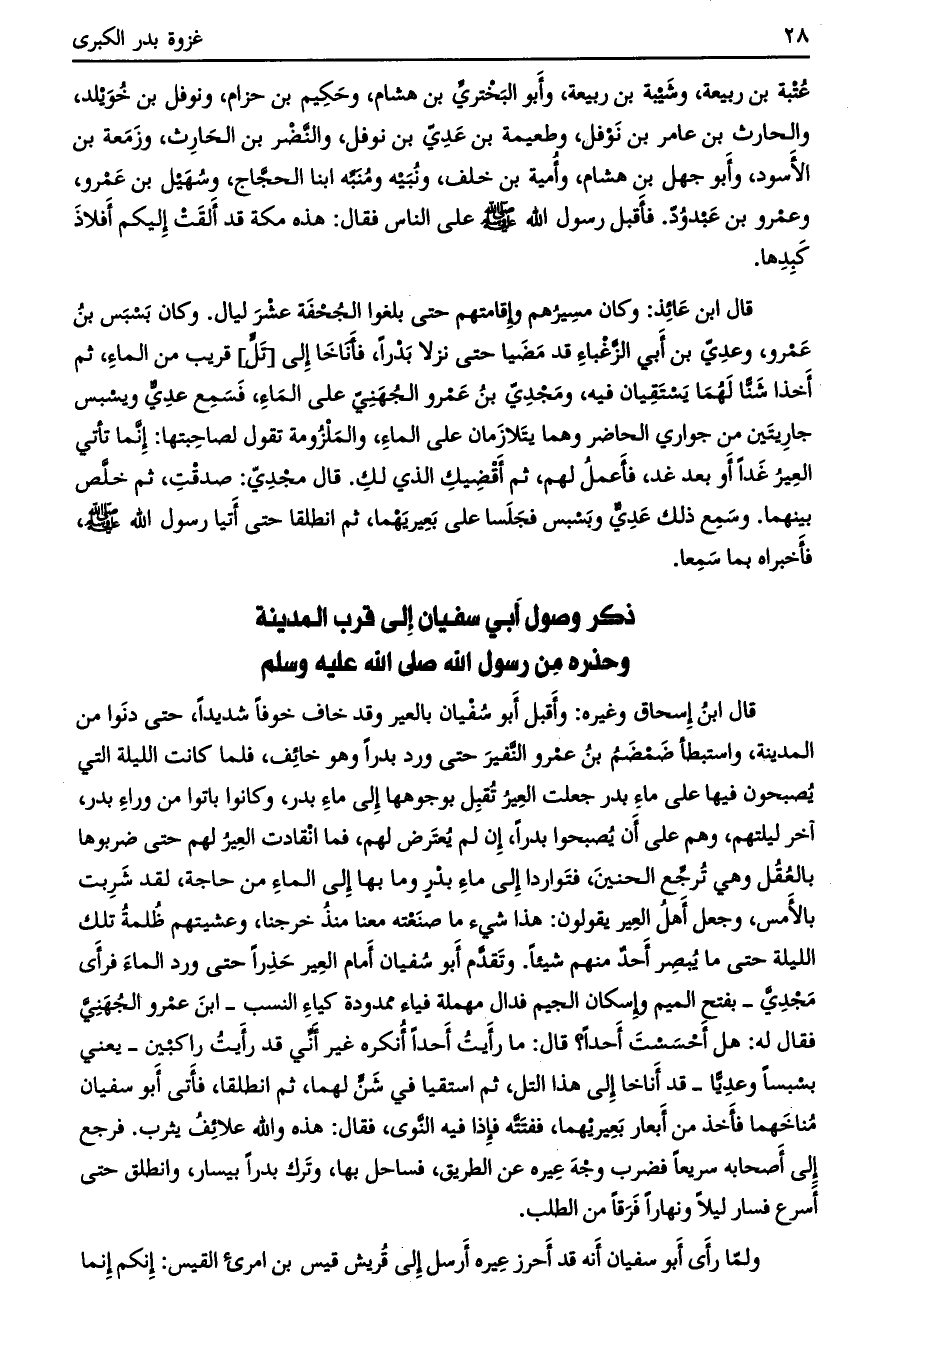 ٢٨
غزوة بدر الكبرى
عُتْبة بن ربيعة، وشَيْبة بن ربيعة، وأَبو البَخْتريِّ بن هشام، وحَكِيم بن حزام، ونوفل بن خُوَيْلد،
والحارث بن عامر بن نَوْفل، وطعيمة بن عَدِيّ بن نوفل، والنَّضْر بن الحَارِث، وزَمَعة بن
الأَسود، وأَبو جهل بن هشام، وأُمية بن خلف، ونُبَيْه ومُنَبِّه ابنا الحجَّاج، وسُهَيْل بن عَمْرو،
وعمْرو بن عَبْدوُدّ. فأَقبل رسول الله ﷺ على الناس فقال: هذه مكة قد أَلقَتْ إِليكم أَفلاذَ
كَبِدِها.
قال ابن عَائِذ: وكان مسِيرُهم وإِقامتهم حتى بلغوا الجُحْفَة عشْرَ ليال. وكان بَسْبَس بنُ
عَمْرو، وعديّ بن أَبي الزَّغْباءِ قد مَضَيا حتى نزلا بَدْراً، فأَنَاخَا إِلى [تَلٍّ] قريب من الماءِ، ثم
أَخذا شَنًّا لَهُمَا يَسْتَقِيان فيه، ومَجْدِيّ بنُ عَمْرو الجُهَنِيّ على المَاءِ، فَسَمِع عديٌّ وبسْبس
جارِيتَين من جواري الحاضر وهما يتَلازَمان على الماءِ، والمَلْزُومة تقول لصاحِبتها: إِنَّما تأتي
العِيرُ غَداً أَو بعد غد، فأَعملُ لهم، ثم أَقْضِيكِ الذي لكِ. قال مجْدِيّ: صدقْتِ، ثم خلَّص
بينهما. وسَمِع ذلك عَدِيٌّ وبَسْبس فجَلَسا على بَعِيريَهْما، ثم انطلقا حتى أَتيا رسول الله ﷺ،
فأَخبراه بما سَمِعا.
ذكر وصول أَبي سفيان إِلى قرب المدينة
وحذره مِن رسول الله صلى الله عليه وسلم
قال ابنُ إِسحاق وغيره: وأَقبل أَبو سُفْيان بالعير وقد خاف خوفاً شديداً، حتى دنَوا من
المدينة، واستبطأَ ضَمْضَمُ بنُ عمْرو النَّفيرَ حتى ورد بدراً وهو خائِف، فلما كانت الليلة التي
يُصبحون فيها على ماءِ بدر جعلت العِيرُ تُقبِل بوجوهها إِلى ماءِ بدر، وكانوا باتوا من وراءِ بدر،
آخر ليلتهم، وهم على أَن يُصبحوا بدراً، إِن لم يُعتَرض لهم، فما انْقادت العِيرُ لهم حتى ضربوها
بالعُقُل وهي تُرجِّع الحنينَ، فتَواردا إِلى ماءِ بدْرٍ وما بها إِلى الماءِ من حاجة، لقد شَرِبت
بالأَمس، وجعل أَهلُ العِير يقولون: هذا شيء ما صنَعَته معنا منذُ خرجنا، وعشيتهم ظُلمةُ تلك
الليلة حتى ما يُبصِر أَحدٌ منهم شيئاً. وتَقدَّم أَبو سُفيان أَمام العِير حَذِراً حتى ورد الماءَ فرأَى
مَجْدِيَّ ــ بفتح الميم وإِسكان الجيم فدال مهملة فياء ممدودة كياءِ النسب ــ ابنَ عمْرو الجُهَنِيَّ
فقال له: هل أَحْسَسْتَ أَحداً؟ قال: ما رأَيتُ أَحداً أُنكره غير أَنِّي قد رأَيتُ راكبَين ــ يعني
بسْبساً وعديًّا ــ قد أَناخا إِلى هذا التل، ثم استقيا في شَنٍّ لهما، ثم انطلقا، فأَتى أَبو سفيان
مُناخَهما فأَخذ من أَبعار بَعِيريْهما، ففتَتَّه فإِذا فيه النَّوى، فقال: هذه والله علائِفُ يثرب. فرجع
إِلى أَصحابه سريعاً فضرب وجْهَ عِيره عن الطريق، فساحل بها، وتَرك بدراً بيسار، وانطلق حتى
أَسرع فسار ليلاً ونهاراً فَرَقاً من الطلب.
ولمّا رأَى أَبو سفيان أَنه قد أَحرز عِيره أَرسل إِلى قُريش قيس بن امرئ القيس: إِنكم إِنما